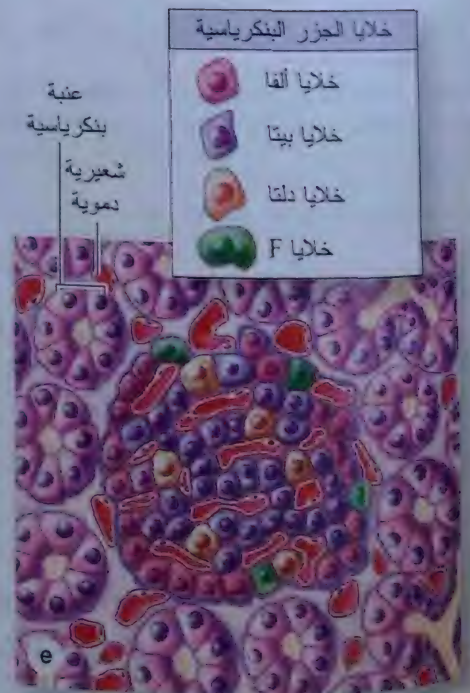 خلايا الجزر البنكرياسية
خلايا ألفا
خلايا بيتا
خلايا دلتا
خلايا F
عنبة
بنكرياسية
شعيرية
دموية
e